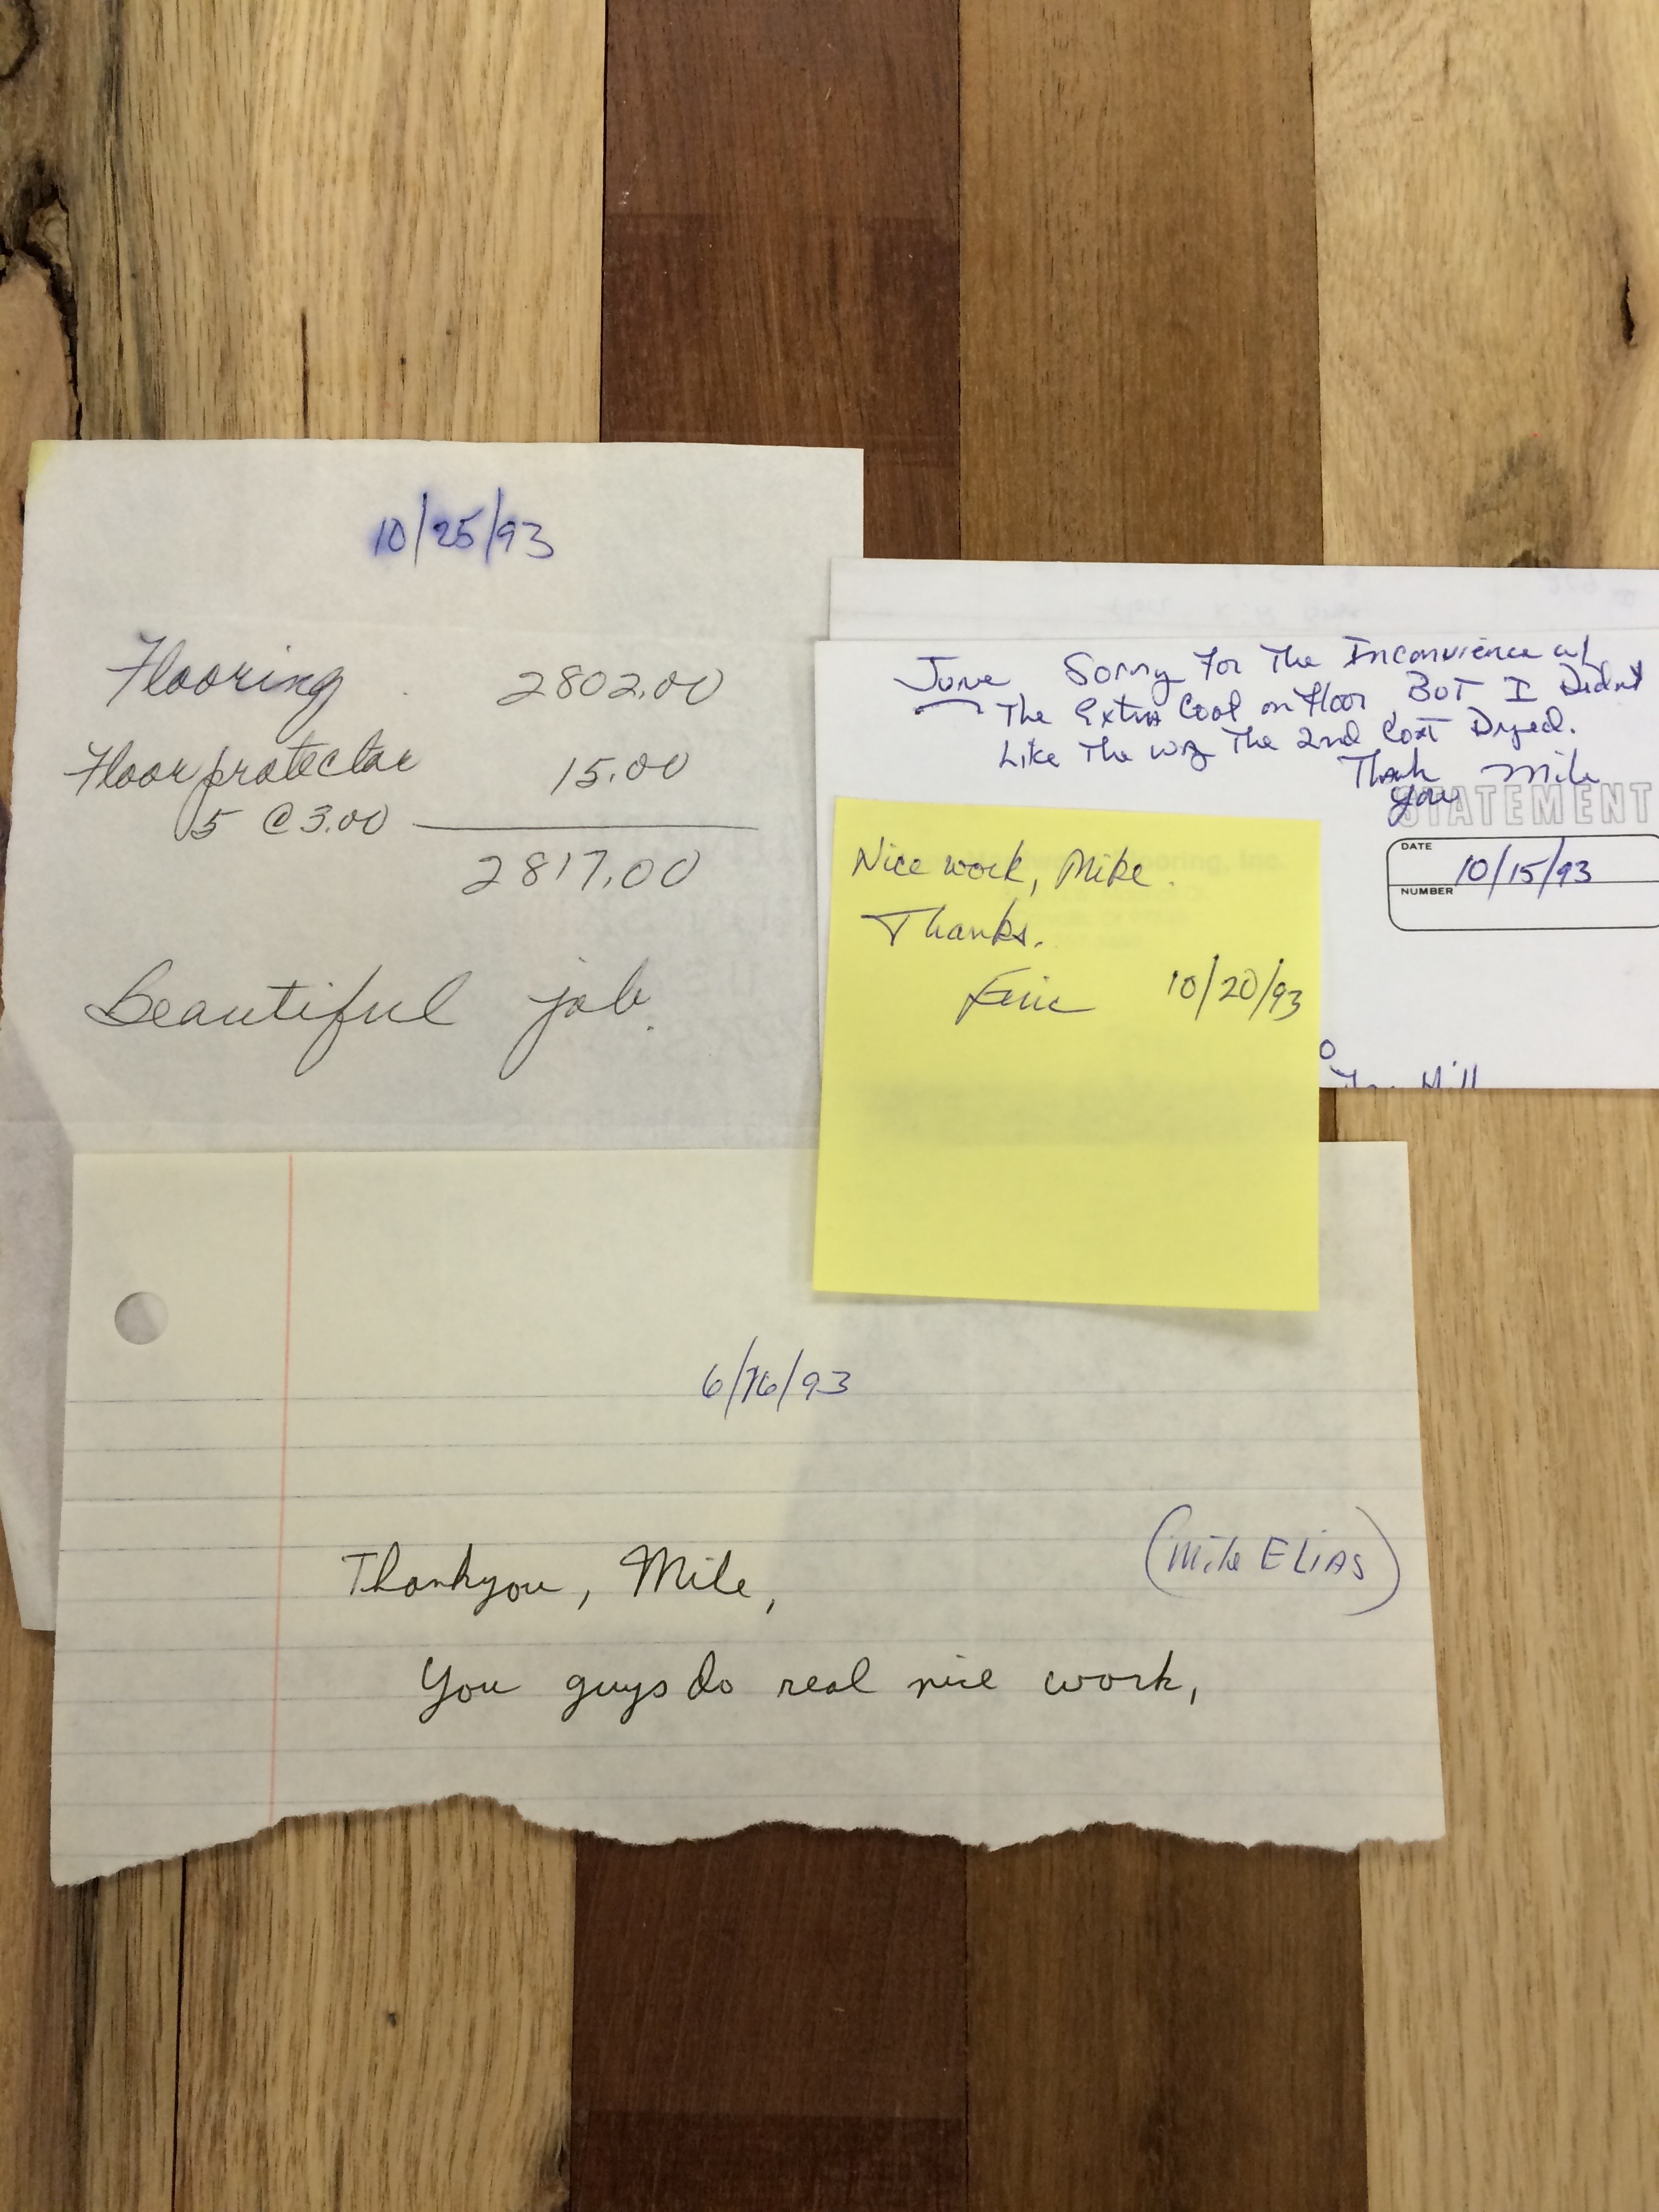 10/25/93
Flooring 2802.00
Floor protector 15.00
5 @ 3.00
2817.00
Beautiful job.
June Sorry For The Inconvience w/
The Extra Coat on Floor, BUT I Didnt
Like The way The 2nd Coat Dryed.
Thank Mike
you
STATEMENT
DATE
10/15/93
NUMBER
Nice work, Mike.
Thanks.
Eric 10/20/93
Hill
6/16/93
(Mike ELIAS)
Thankyou, Mike,
You guys do real nice work,